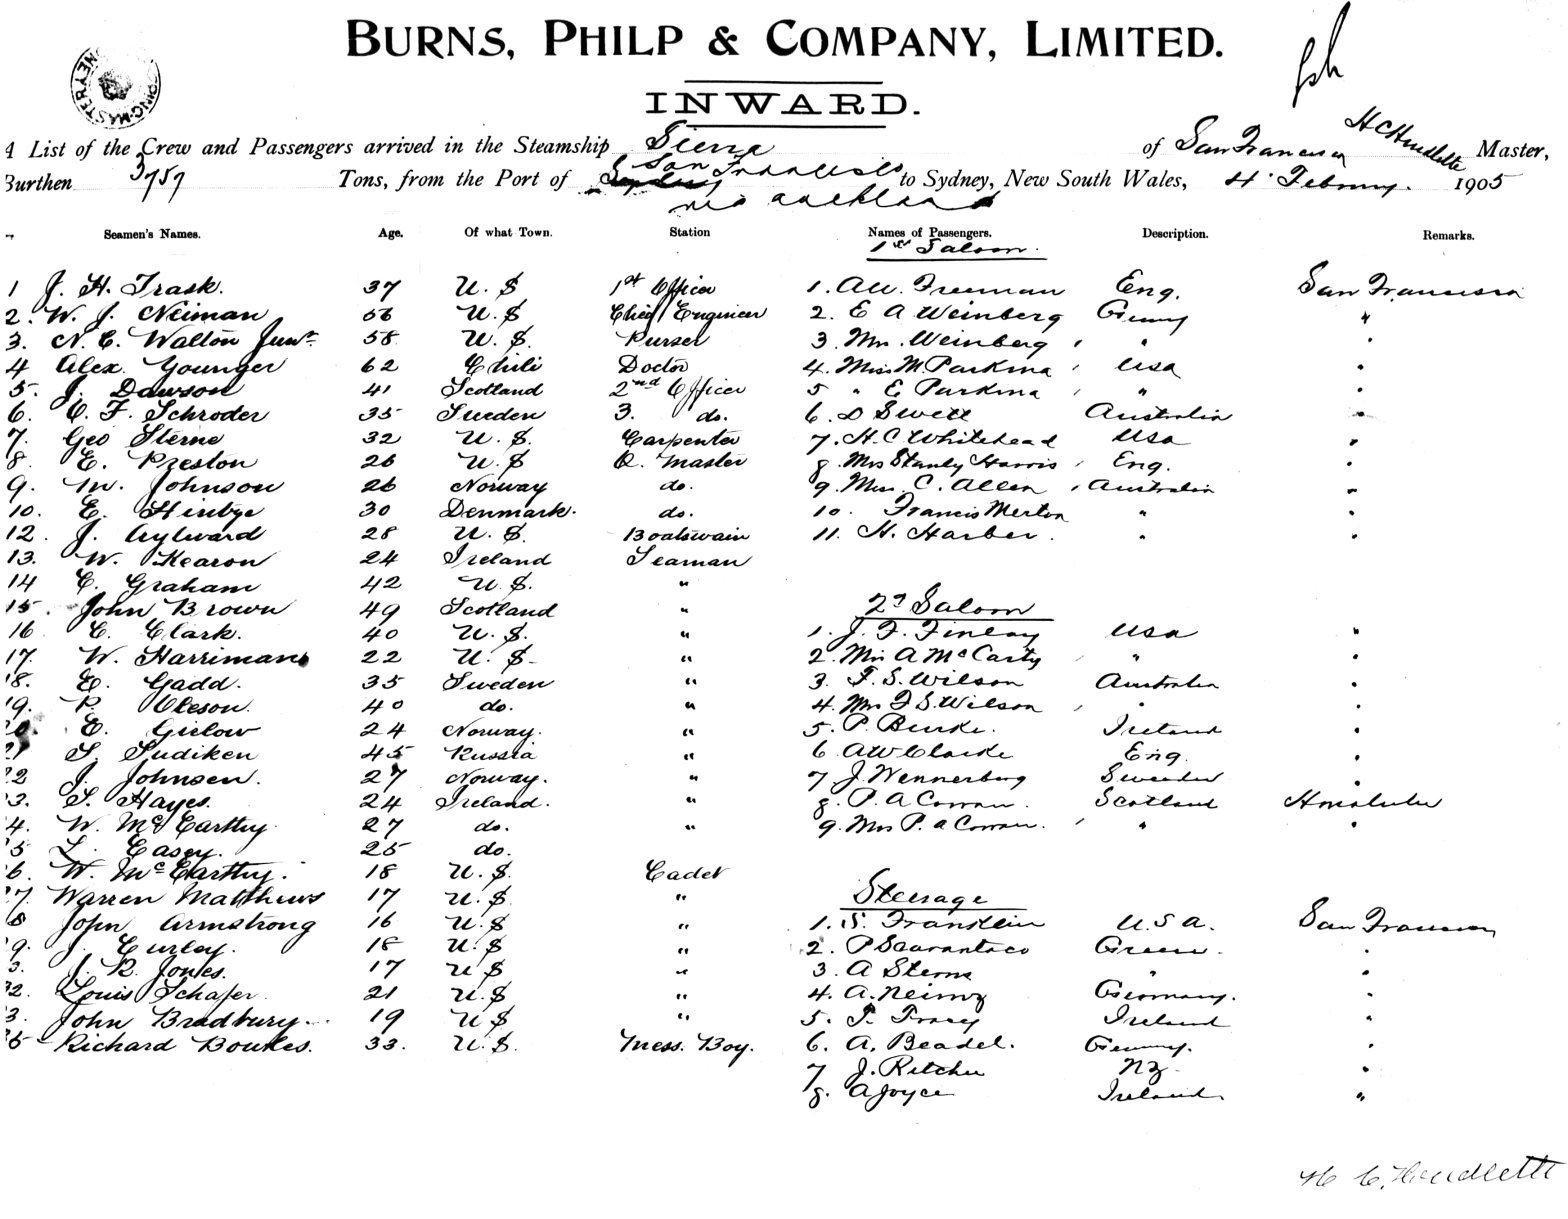 BURNS, PHILP & COMPANY, LIMITED.
INWARD.
A List of the Crew and Passengers arrived in the Steamship Sierra of San Francisco Master,
Burthen 3757 Tons, from the Port of San Francisco to Sydney, New South Wales, 4 February 1905
via Auckland
Seamen's Names. Age. Of what Town. Station Names of Passengers. Description. Remarks.
1st Saloon.
1 J. H. Trask. 37 U. S 1st Officer 1. AW. Freeman Eng. San Francisco
2. W. J. Neiman 56 U. S Chief Engineer 2. E A Weinberg Gemny "
3. N. C. Walton Junr. 58 U. S. Purser 3 Mrs. Weinberg " "
4 Alex. Younger 62 Chili Doctor 4. Miss M Parkma USA "
5. J. Dawson 41 Scotland 2nd Officer 5 " E Parkma " "
6. C. F. Schroder 35 Sweden 3. do. 6. D Swett Australia "
7. Geo Sterne 32 U. S. Carpenter 7. H. C Whitehead USA "
8. E. Preston 26 U. S Q. Master 8. Mrs Stanly Harris Eng. "
9. M. Johnson 26 Norway do. 9. Miss C. Allen Australia "
10. E. 30 Denmark. do. 10. Francis Merton " "
12. J. Aylward 28 U. S. Boatswain 11. H. Harber. " "
13. W. Kearon 24 Ireland Seaman
14 C. Graham 42 U. S. "
15. John Brown 49 Scotland " 2d Saloon
16 C. Clark. 40 U. S. " 1. J. F. Finlay USA "
17. W. Harriman 22 U. S. " 2. Mrs A McCarty " "
18. E. Gadd. 35 Sweden " 3. F. S. Wilson Australia "
19. P. Oleson. 40 do. " 4. Mrs F S. Wilson " "
20. E. Gislow 24 Norway. " 5. P. Burke. Ireland "
21 S. Sudiken 45 Russia " 6 AW Clarke Eng. "
22 J. Johnsen. 27 Norway. " 7 J. Wennerberg Sweeden "
3. S. Hayes. 24 Ireland. " 8. P. A Cowan. Scotland Honolulu
4. W. McCarthy. 27 do. " 9. Mrs P. A Cowan. " "
5 L. Casey. 25 do.
6. W. McCarthy. 18 U. S. Cadet
27. Warren Matthews 17 U. S " Steerage
8 John Armstrong 16 U. S " 1. S. Franklin U. S A. San Francisco
9. J. Curley. 18 U. S " 2. P Scarantaco Greece. "
3. J. R. Jones. 17 U S " 3. A Sterne " "
32. Louis Schafer. 21 U. S " 4. A. Neimz Geomany. "
3. John Bradbury. 19 U S " 5. T. Tracy Ireland "
35 Richard Bowles. 33. U. S. Mess. Boy. 6. A. Beadel. Gemny. "
7 J. Ritchie NZ "
8. A Joyce Ireland "
H C. Houdlette